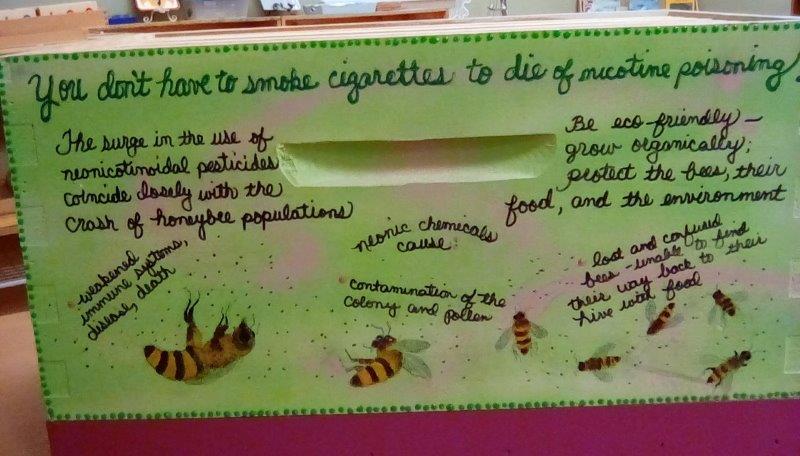 You don't have to smoke cigarettes to die of nicotine poisoning!
The surge in the use of
neonicotinoidal pesticides
coincide closely with the
crash of honeybee populations
Be eco-friendly –
grow organically;
protect the bees, their
food, and the environment
neonic chemicals
cause:
• weakened
immune systems,
disease, death
• contamination of the
colony and pollen
• lost and confused
bees - unable to find
their way back to their
hive with food